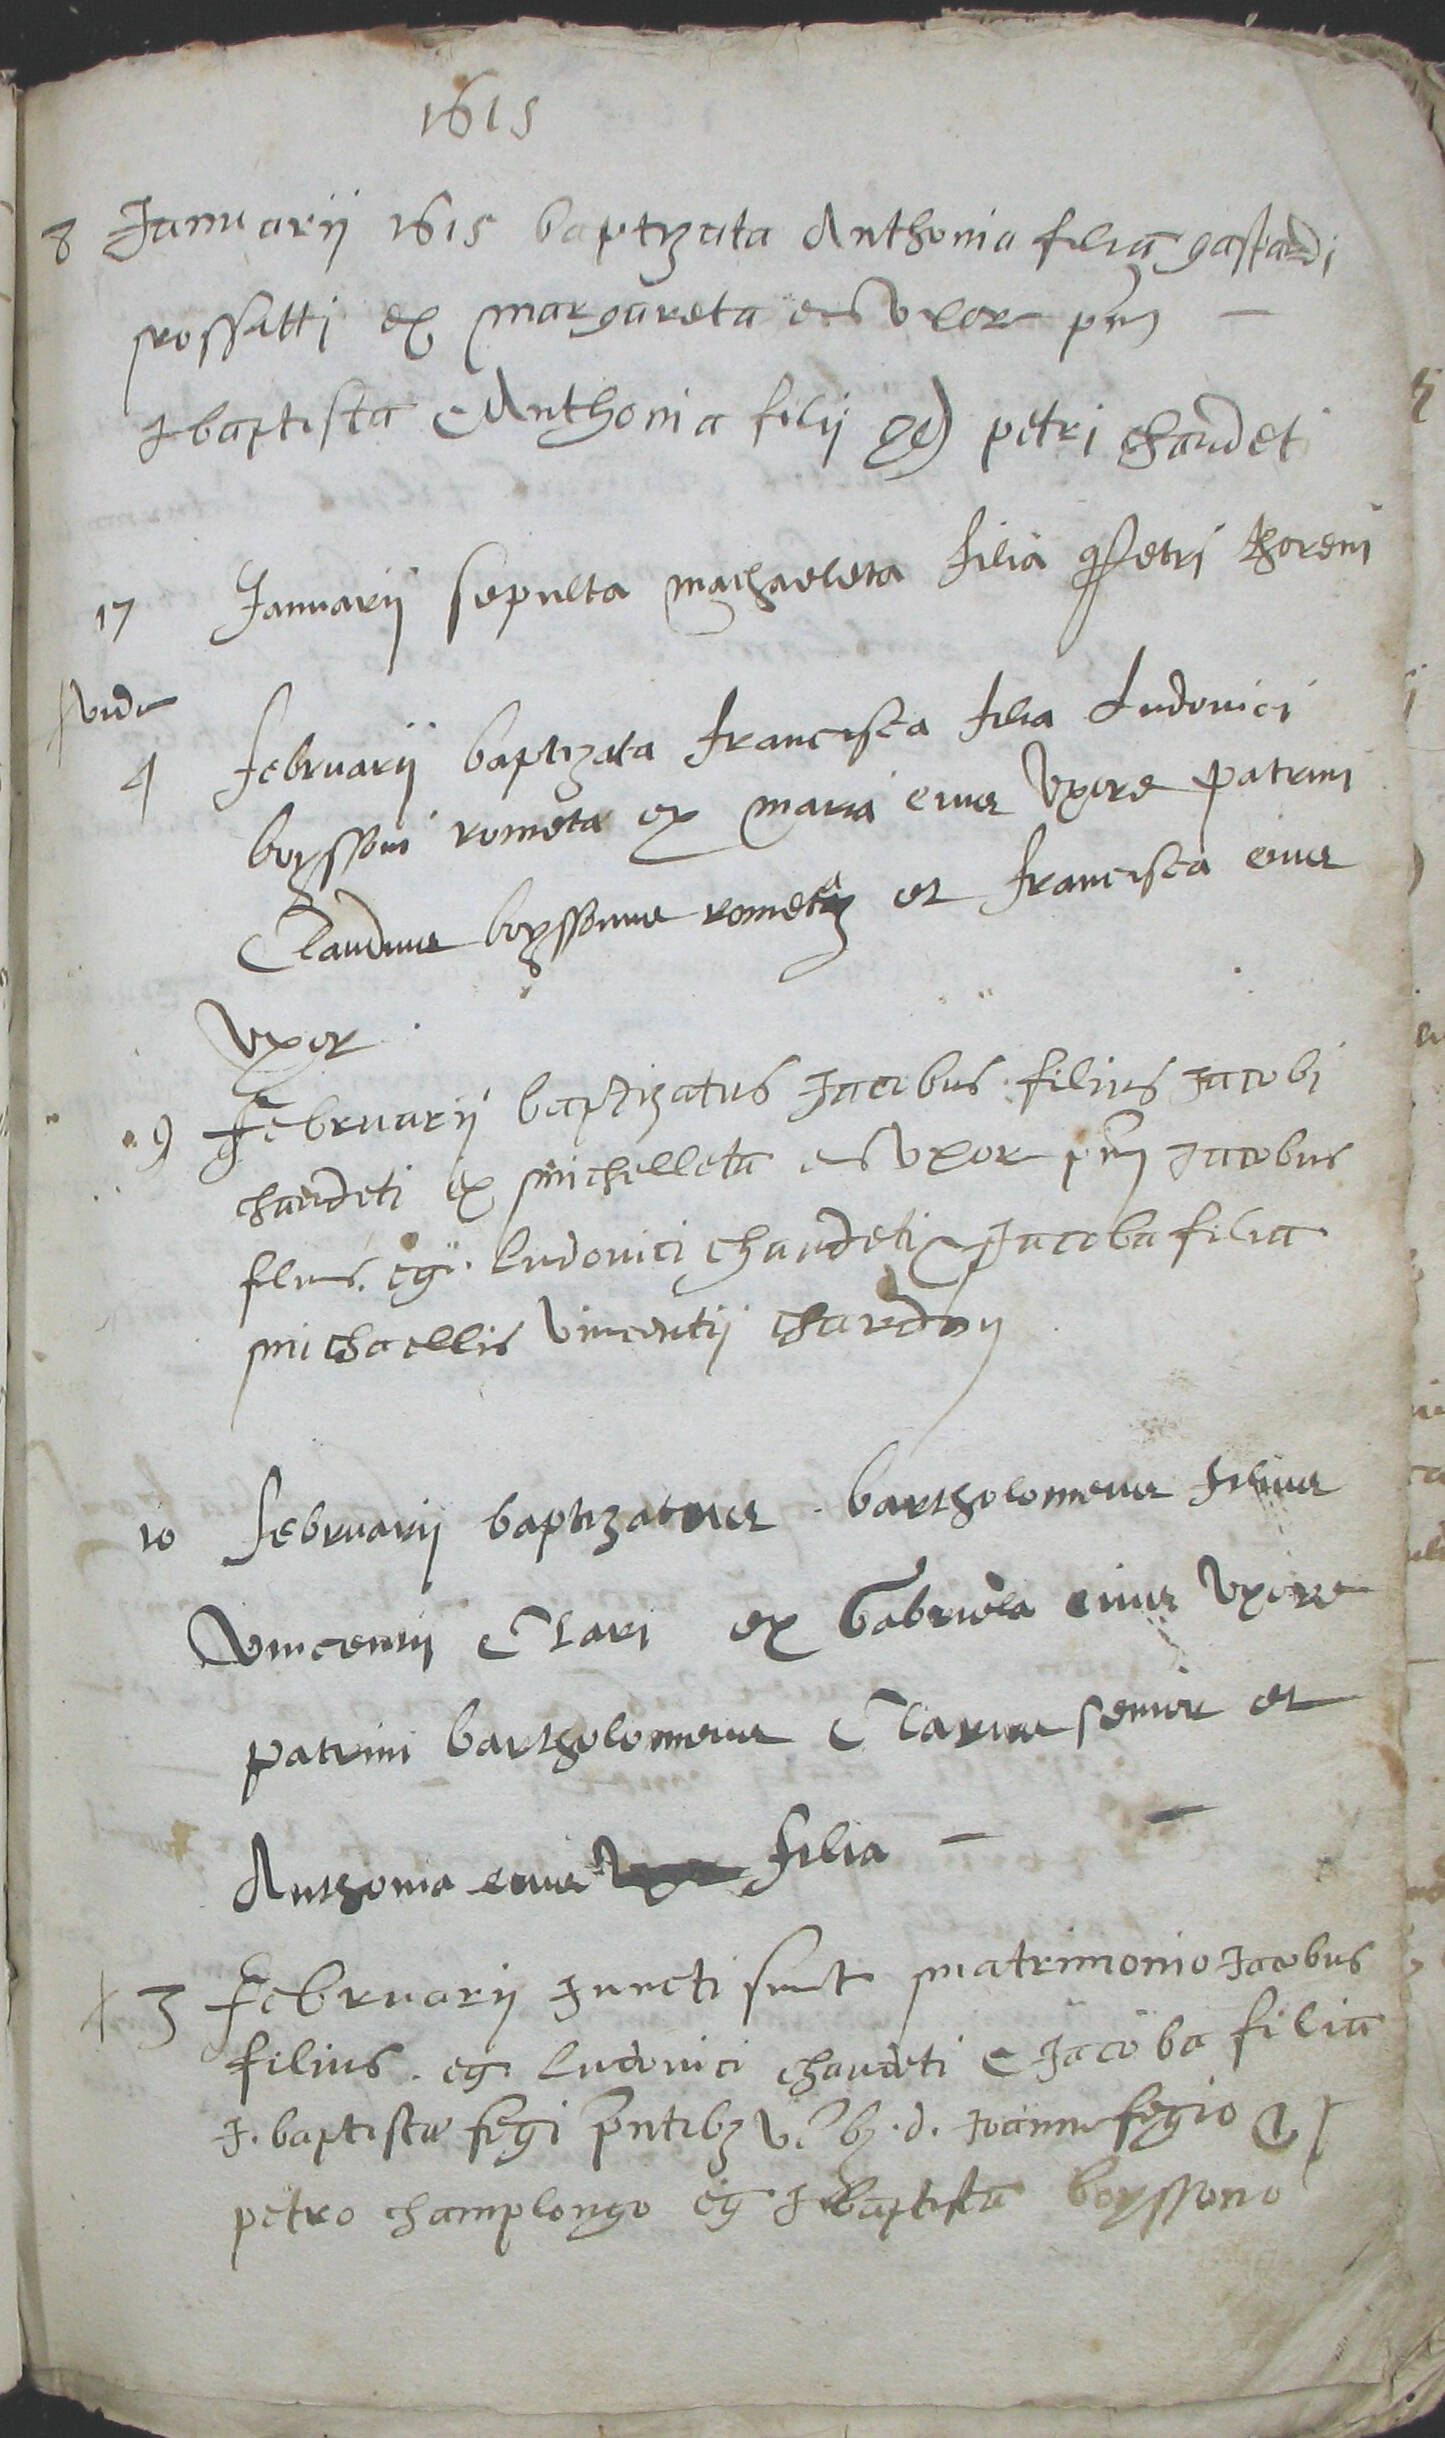 1615
8 Januarij 1615 baptizata Anthonia filia gaspardi
rossetti ex margareta eius uxor pni
J baptista & Anthonia filij qd petri chaudeti
17 Januarij sepulta michaeleta filia q Petri thoreni
vide
4 februarij baptizata francisca filia Ludovici
boyssoni rometa ex maria eius Uxore patrini
Claudius boyssonus et francisca eius
Uxor
9 Februarij baptizatus Jacobus filius Jacobi
chaudeti ex michelleta eius uxor pni Jacobus
filius eg. Ludovici chaudeti & Jacoba filia
michaellis Vincentij chardon
10 februarij baptizatus bartholomeus filius
Vincentij Clari ex Gabriela eius Uxore
patrini bartholomeus Clarus senior et
Anthonia eius filia
3 Februarij Juncti sunt matrimonio Jacobus
filius eg. Ludovici chaudeti & Jacoba filia
J. baptista fegi pntibz d. Joanne fegio &
petro champlongo eg J baptista boyssono